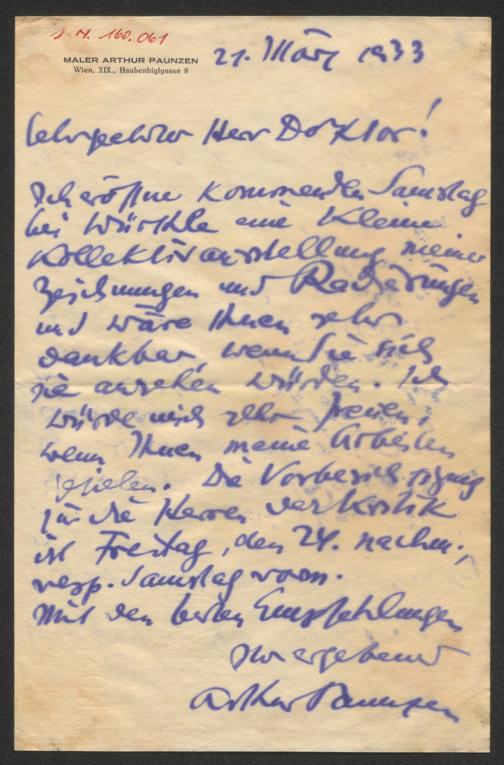 J. N. 160.061
MALER ARTHUR PAUNZEN
Wien, XIX., Haubenbiglgasse 8
21. März 1933
Sehr geehrter Herr Doktor!
Ich eröffne kommenden Samstag
bei Würthle eine kleine
Kollektivausstellung meiner
Zeichnungen und Radierungen
und wäre Ihnen sehr
dankbar, wenn Sie sich
sie ansehen würden. Ich
würde mich sehr freuen,
wenn Ihnen meine Arbeiten
gefielen. Die Vorbesichtigung
für die Herren der Kritik
ist Freitag, den 24. nachm.,
resp. Samstag vorm.
Mit den besten Empfehlungen
Ihr ergebener
Arthur Paunzen